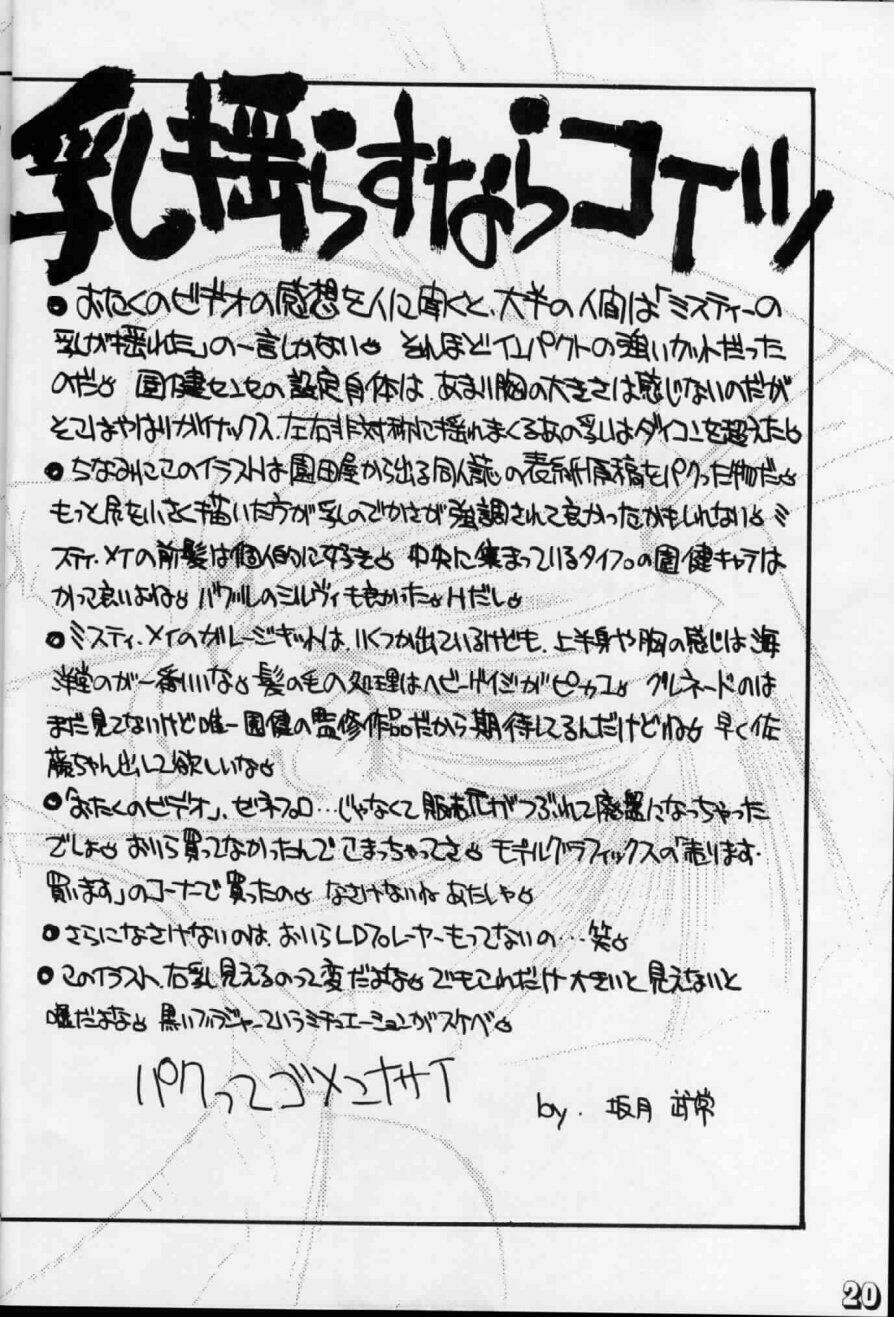 乳揺らすならコイツ
●おたくのビデオの感想を人に聞くと、大半の人間は「ミスティーの
乳が揺れた」の一言しかない。それほどインパクトの強いカットだった
のだ。園健センセの設定自体は、あまり胸の大きさは感じないのだが
そこはやはりガイナックス、左右非対称に揺れまくるあの乳はダイコンを超えた。
●ちなみにこのイラストは園田屋から出る同人誌の表紙原稿をパクった物だ。
もっと尻を小さく描いた方が乳のでかさが強調されて良かったかもしれない。ミ
スティ・メイの前髪は個人的に好き。中央に集まっているタイプの園健キャラは
かって良いよね。バヴルのシルヴィも良かった。Hだし。
●ミスティ・メイのガレージキットは、いくつか出ているけども、上半身や胸の感じは海
洋堂のが一番いいな。髪の毛の処理はヘビーゲイジがピカコ。グルネードのは
まだ見てないけど唯一園健の監修作品だから期待してるんだけどね。早く佐
藤ちゃん出して欲しいな。
●「おたくのビデオ」、ゼネプロ…じゃなくて販売元がつぶれて廃盤になっちゃった
でしょ。おいら買ってなかったんでこまっちゃってさ。モデルグラフィックスの「売ります・
買います」のコーナーで買ったの。なさけないねあたしゃ。
●さらになさけないのは、おいらLDプレーヤーもってないの…笑。
●このイラスト、右乳見えるのって変だよな。でもこれだけ大きいと見えないと
嘘だよな。黒いブラジャーっていうシチュエーションがスケベ。
パクってゴメンナサイ
by. 坂月 武常
20